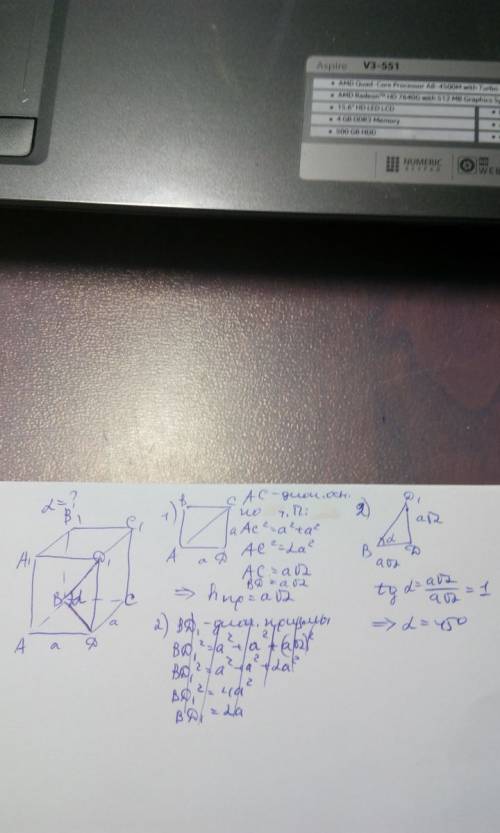 Aspire V3-551
• AMD Quad-Core Processor A8-4500M with Turbo
• AMD Radeon™ HD 7640G with 512 MB Graphics
• 15.6" HD LED LCD
• 4 GB DDR3 Memory
• 500 GB HDD
NUMERIC
KEYPAD
α = ?
B1
C1
A1
D1
B
α
C
A
a
D
a
1)
B
C
A
a
D
a
AC - диаг. осн.
по т. П:
AC² = a² + a²
AC² = 2a²
AC = a√2
BD = a√2
⇒ hпр = a√2
2) BD1 - диаг. призмы
BD1² = a² + a² + (a√2)²
BD1² = a² + a² + 2a²
BD1² = 4a²
BD1 = 2a
2)
D1
a√2
B
α
D
a√2
tg α = a√2/a√2 = 1
⇒ α = 45°